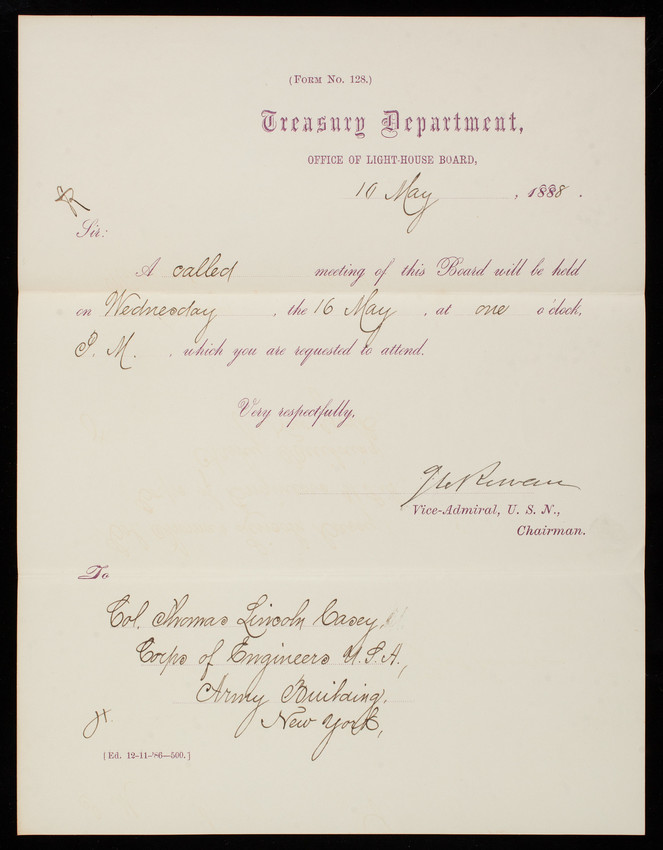 (Form No. 128.)
Treasury Department,
OFFICE OF LIGHT-HOUSE BOARD,
10 May, 1888.
Sir:
A called meeting of this Board will be held
on Wednesday, the 16 May, at one o'clock,
P. M., which you are requested to attend.
Very respectfully,
Rowan
Vice-Admiral, U. S. N.,
Chairman.
To
Col. Thomas Lincoln Casey,
Corps of Engineers U.S.A.,
Army Building,
New York,
[Ed. 12-11-'86—500.]